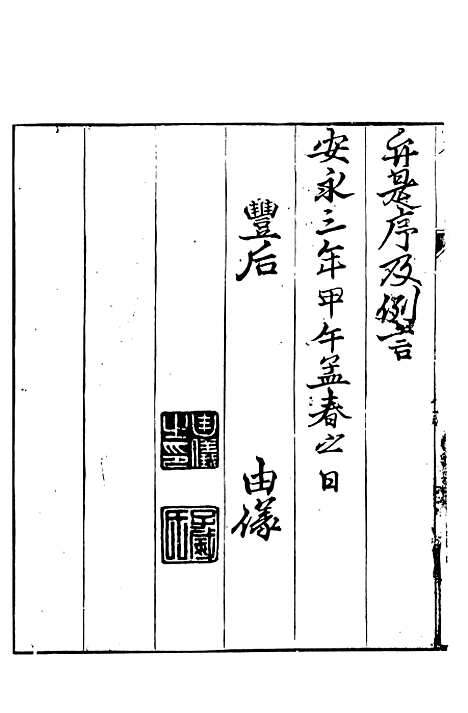 弁是序及例言
安永三年甲午孟春之日
豐后 由儀
由儀之印